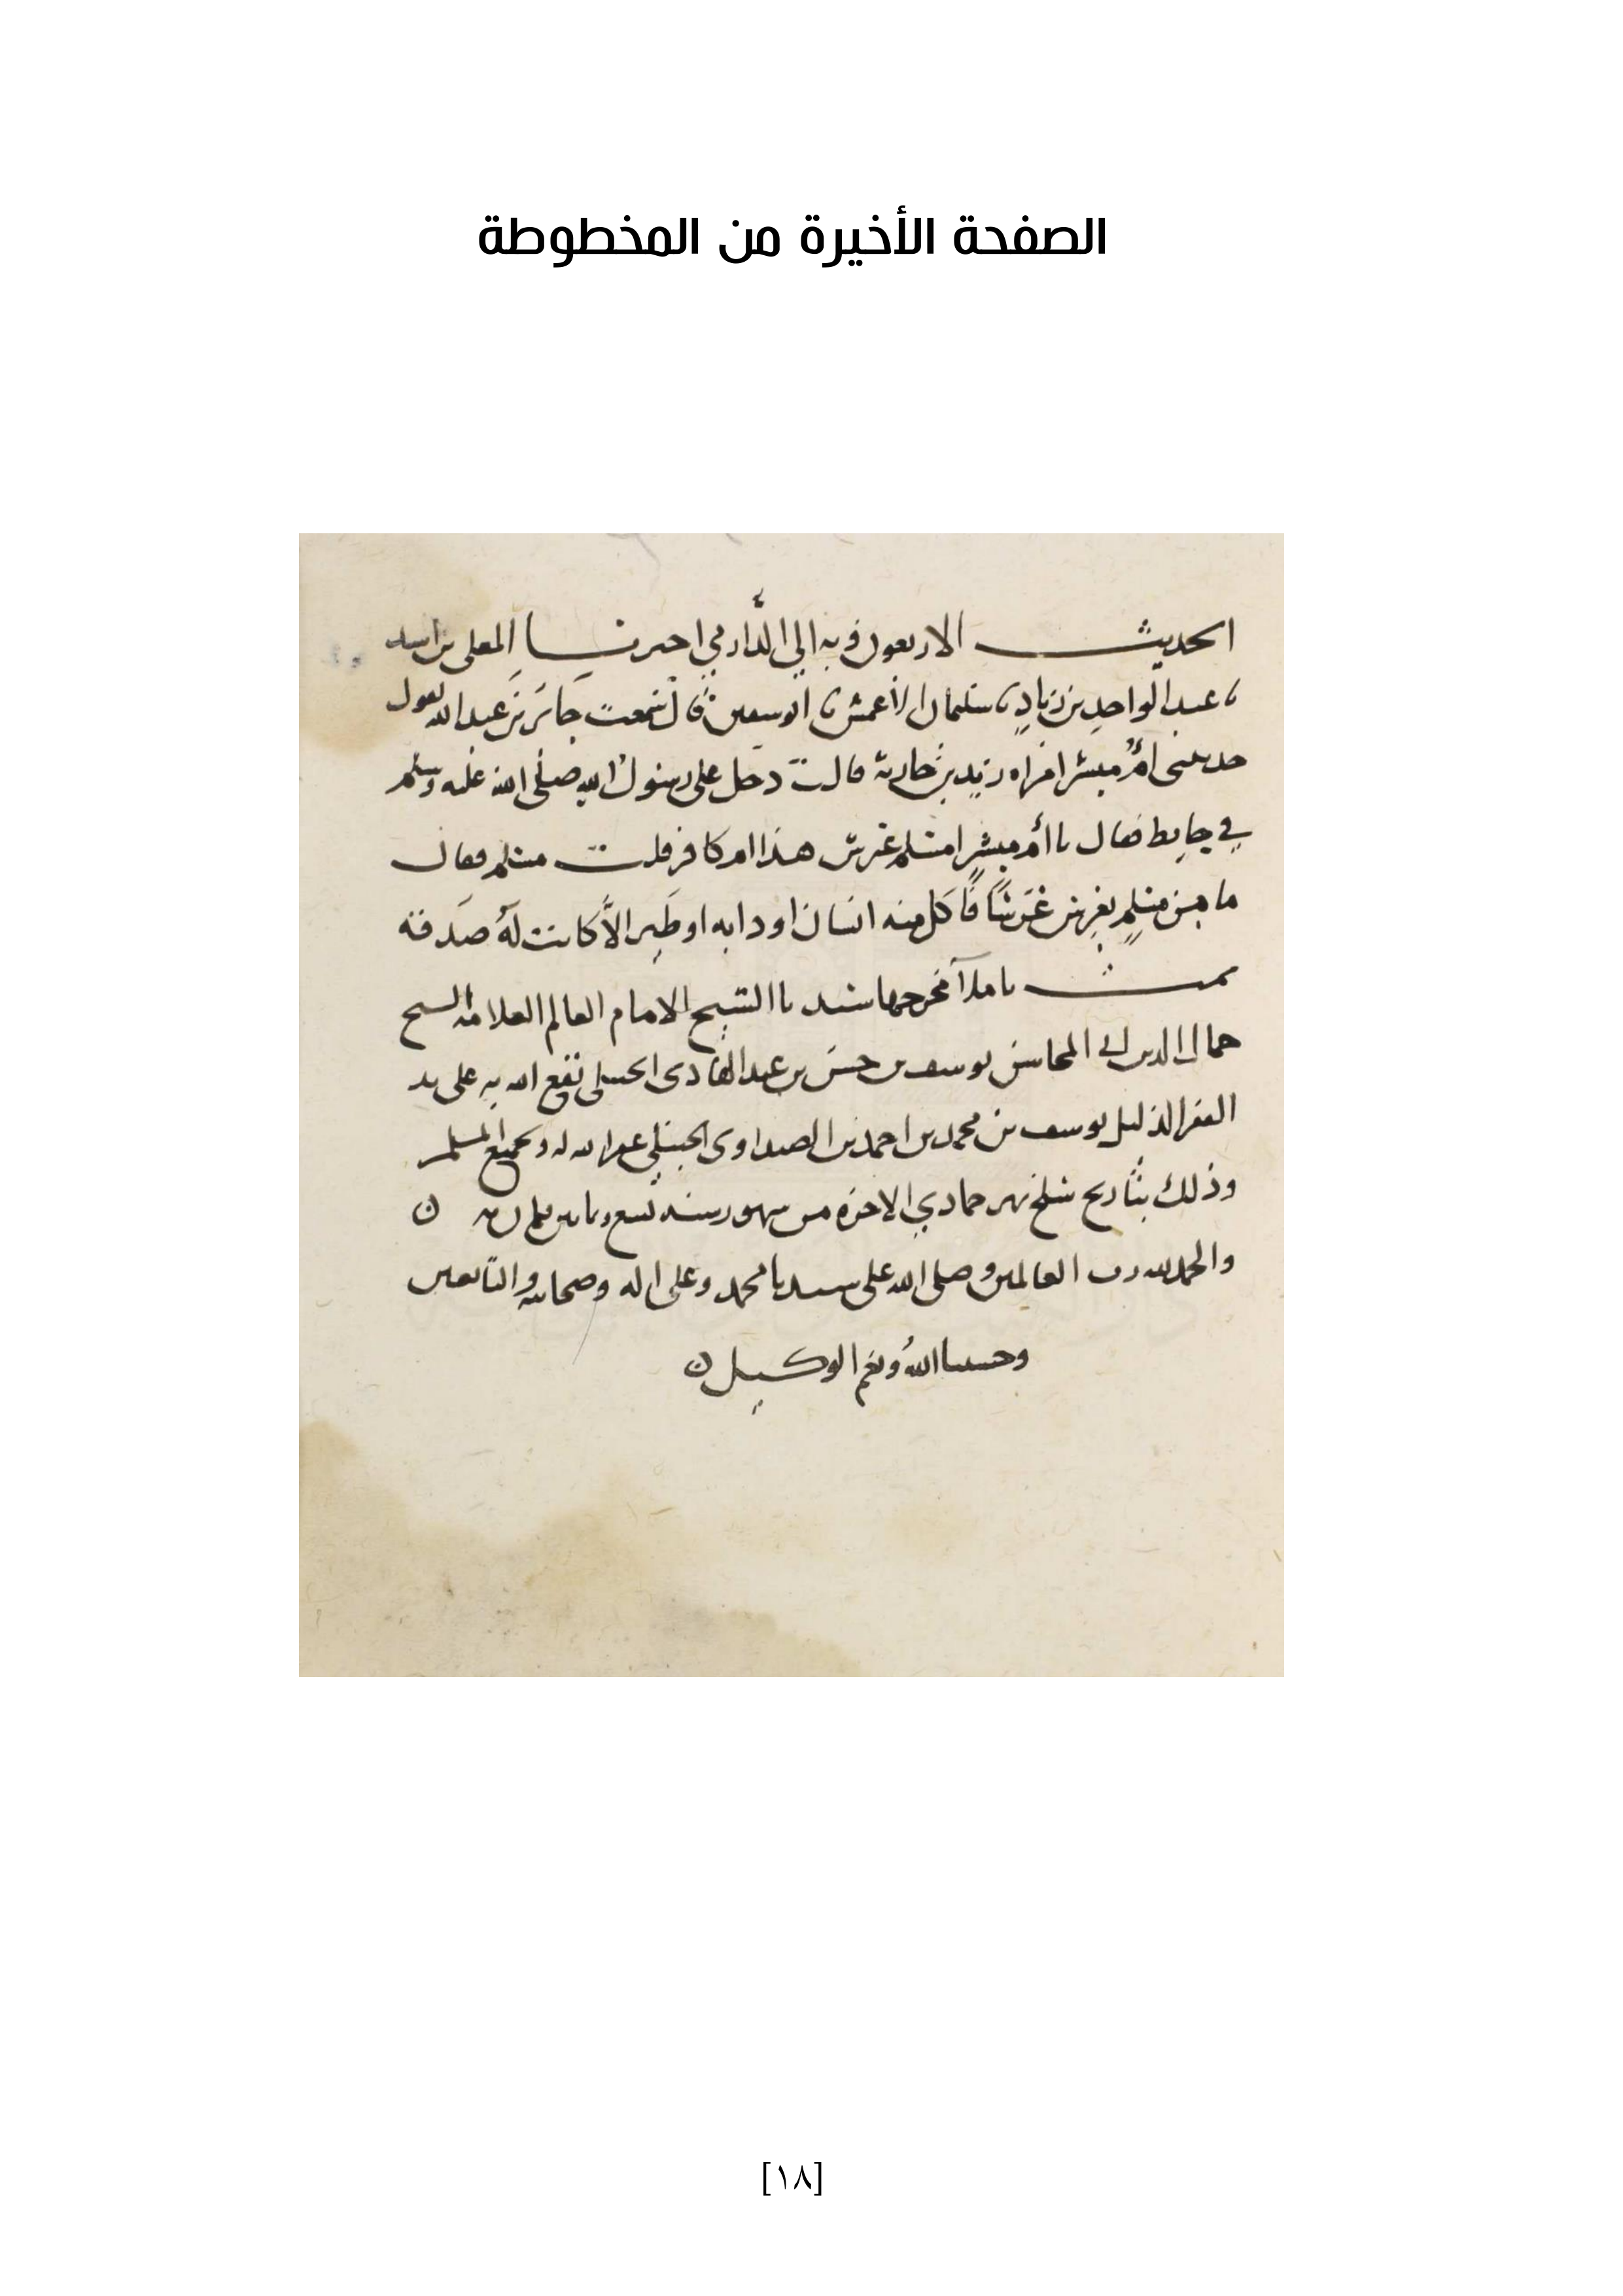 الصفحة الأخيرة من المخطوطة
الحديث الاربعون وبه الي الدارمي اخبرنا المعلى بن اسد
عبد الواحد بن زياد سليمان الأعمش ابو سفين قال سمعت جابر بن عبد الله يقول
حدثتني ام مبشر امراه زيد بن حارثة قالت دخل علي رسول الله صلى الله عليه وسلم
في حايط فقال يا أم مبشر امسلم غرس هذا ام كافر قلت مسلم فقال
ما من مسلم يغرس غرسًا فأكل منه انسان او دابه او طير الا كانت له صدقة
تمت الشيخ الامام العالم العلامة الشيخ
جمال الدين ابي المحاسن يوسف بن حسن بن عبد الهادي الحنبلي نفع الله به على يد
الفقير الذليل يوسف بن محمد بن احمد بن الصيداوي الحنبلي غفر الله له ولجميع المسلمين
وذلك بتاريخ سلخ شهر جمادي الاخرة من شهور سنة تسع
والحمد لله رب العالمين وصلى الله على سيدنا محمد وعلى اله وصحابته والتابعين
وحسبنا الله ونعم الوكيل
[١٨]